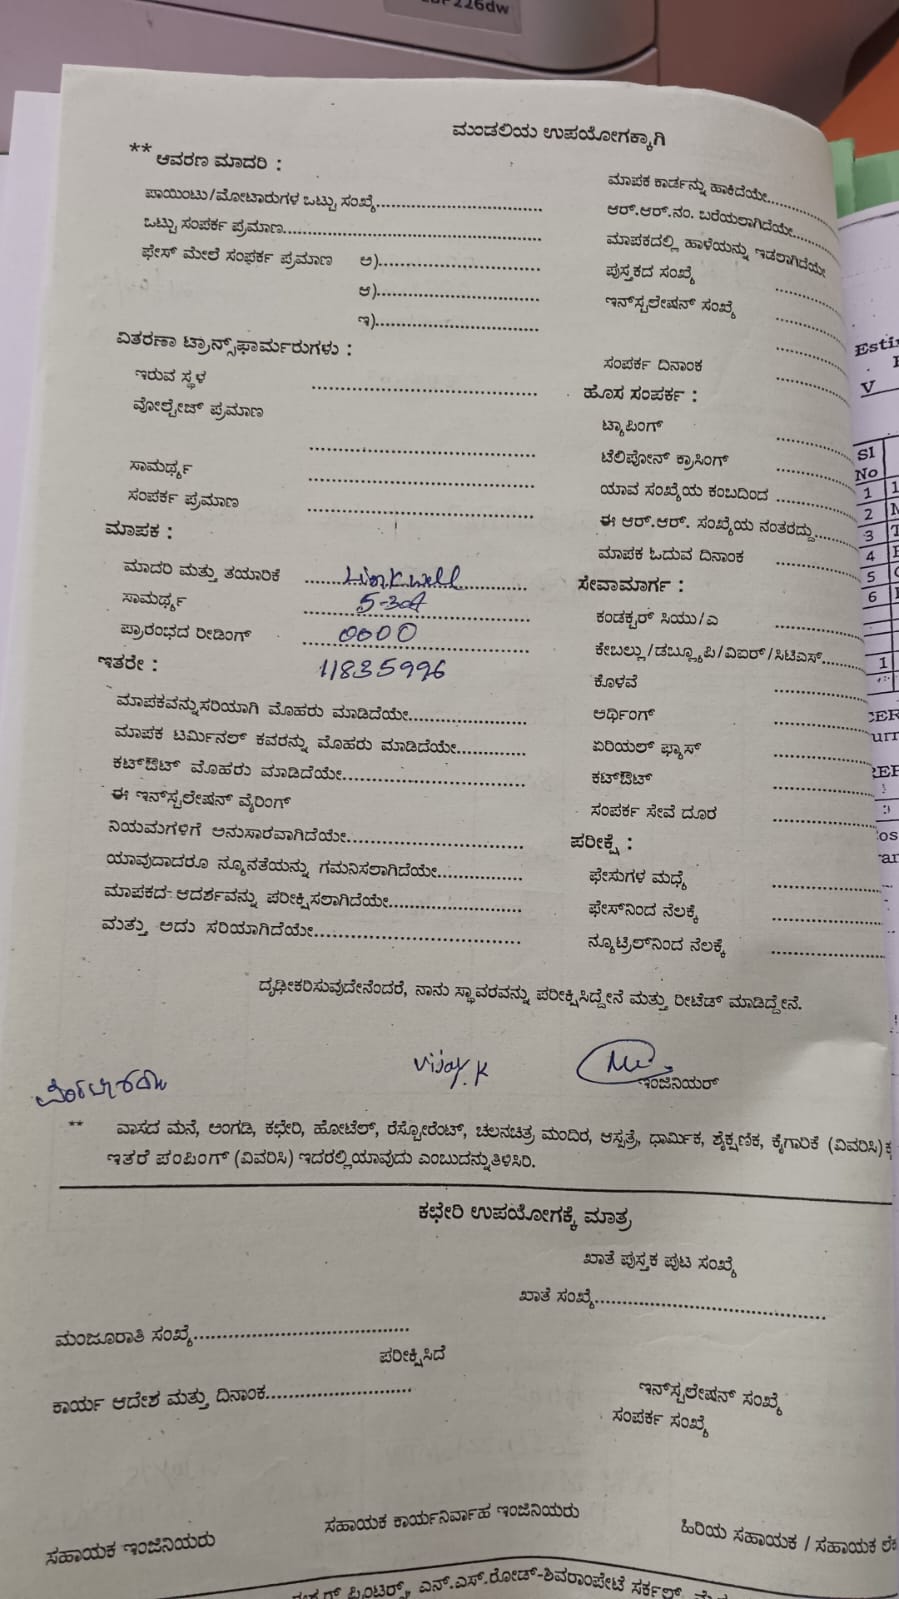 226dw
ಮಂಡಲಿಯ ಉಪಯೋಗಕ್ಕಾಗಿ
** ಆವರಣ ಮಾದರಿ :
ಪಾಯಿಂಟು/ಮೋಟಾರುಗಳ ಒಟ್ಟು ಸಂಖ್ಯೆ
ಒಟ್ಟು ಸಂಪರ್ಕ ಪ್ರಮಾಣ
ಫೇಸ್ ಮೇಲೆ ಸಂಪರ್ಕ ಪ್ರಮಾಣ ಅ)
ಆ)
ಇ)
ವಿತರಣಾ ಟ್ರಾನ್ಸ್‌ಫಾರ್ಮರುಗಳು :
ಇರುವ ಸ್ಥಳ
ವೋಲ್ಟೇಜ್ ಪ್ರಮಾಣ
ಸಾಮರ್ಥ್ಯ
ಸಂಪರ್ಕ ಪ್ರಮಾಣ
ಮಾಪಕ :
ಮಾದರಿ ಮತ್ತು ತಯಾರಿಕೆ Linkwell
ಸಾಮರ್ಥ್ಯ 5-30A
ಪ್ರಾರಂಭದ ರೀಡಿಂಗ್ 0000
ಇತರೇ : 11835996
ಮಾಪಕವನ್ನುಸರಿಯಾಗಿ ಮೊಹರು ಮಾಡಿದೆಯೇ
ಮಾಪಕ ಟರ್ಮಿನಲ್ ಕವರನ್ನು ಮೊಹರು ಮಾಡಿದೆಯೇ
ಕಟ್‌ಔಟ್ ಮೊಹರು ಮಾಡಿದೆಯೇ
ಈ ಇನ್‌ಸ್ಟಲೇಷನ್ ವೈರಿಂಗ್
ನಿಯಮಗಳಿಗೆ ಅನುಸಾರವಾಗಿದೆಯೇ
ಯಾವುದಾದರೂ ನ್ಯೂನತೆಯನ್ನು ಗಮನಿಸಲಾಗಿದೆಯೇ
ಮಾಪಕದ ಆದರ್ಶವನ್ನು ಪರೀಕ್ಷಿಸಲಾಗಿದೆಯೇ
ಮತ್ತು ಅದು ಸರಿಯಾಗಿದೆಯೇ
ಮಾಪಕ ಕಾರ್ಡನ್ನು ಹಾಕಿದೆಯೇ
ಆರ್.ಆರ್.ನಂ. ಬರೆಯಲಾಗಿದೆಯೇ
ಮಾಪಕದಲ್ಲಿ ಹಾಳೆಯನ್ನು ಇಡಲಾಗಿದೆಯೇ
ಪುಸ್ತಕದ ಸಂಖ್ಯೆ
ಇನ್‌ಸ್ಟಲೇಷನ್ ಸಂಖ್ಯೆ
ಸಂಪರ್ಕ ದಿನಾಂಕ
ಹೊಸ ಸಂಪರ್ಕ :
ಟ್ಯಾಪಿಂಗ್
ಟೆಲಿಫೋನ್ ಕ್ರಾಸಿಂಗ್
ಯಾವ ಸಂಖ್ಯೆಯ ಕಂಬದಿಂದ
ಈ ಆರ್.ಆರ್. ಸಂಖ್ಯೆಯ ನಂತರದ್ದು
ಮಾಪಕ ಓದುವ ದಿನಾಂಕ
ಸೇವಾಮಾರ್ಗ :
ಕಂಡಕ್ಟರ್ ಸಿಯು/ಎ
ಕೇಬಲ್ಲು/ಡಬ್ಲ್ಯೂಪಿ/ವಿಐರ್/ಸಿಟಿಎಸ್
ಕೊಳವೆ
ಅರ್ಥಿಂಗ್
ಏರಿಯಲ್ ಫ್ಯೂಸ್
ಕಟ್‌ಔಟ್
ಸಂಪರ್ಕ ಸೇವೆ ದೂರ
ಪರೀಕ್ಷೆ :
ಫೇಸುಗಳ ಮಧ್ಯೆ
ಫೇಸ್‌ನಿಂದ ನೆಲಕ್ಕೆ
ನ್ಯೂಟ್ರಿಲ್‌ನಿಂದ ನೆಲಕ್ಕೆ
ದೃಢೀಕರಿಸುವುದೇನೆಂದರೆ, ನಾನು ಸ್ಥಾವರವನ್ನು ಪರೀಕ್ಷಿಸಿದ್ದೇನೆ ಮತ್ತು ರೀಟೆಡ್ ಮಾಡಿದ್ದೇನೆ.
Vijay.K
ಇಂಜಿನಿಯರ್
** ವಾಸದ ಮನೆ, ಅಂಗಡಿ, ಕಛೇರಿ, ಹೋಟೆಲ್, ರೆಸ್ಟೋರೆಂಟ್, ಚಲನಚಿತ್ರ ಮಂದಿರ, ಆಸ್ಪತ್ರೆ, ಧಾರ್ಮಿಕ, ಶೈಕ್ಷಣಿಕ, ಕೈಗಾರಿಕೆ (ವಿವರಿಸಿ)
ಇತರೆ ಪಂಪಿಂಗ್ (ವಿವರಿಸಿ) ಇದರಲ್ಲಿಯಾವುದು ಎಂಬುದನ್ನುತಿಳಿಸಿರಿ.
ಕಛೇರಿ ಉಪಯೋಗಕ್ಕೆ ಮಾತ್ರ
ಖಾತೆ ಪುಸ್ತಕ ಪುಟ ಸಂಖ್ಯೆ
ಖಾತೆ ಸಂಖ್ಯೆ
ಮಂಜೂರಾತಿ ಸಂಖ್ಯೆ
ಪರೀಕ್ಷಿಸಿದೆ
ಕಾರ್ಯ ಆದೇಶ ಮತ್ತು ದಿನಾಂಕ
ಇನ್‌ಸ್ಟಲೇಷನ್ ಸಂಖ್ಯೆ
ಸಂಪರ್ಕ ಸಂಖ್ಯೆ
ಸಹಾಯಕ ಇಂಜಿನಿಯರು
ಸಹಾಯಕ ಕಾರ್ಯನಿರ್ವಾಹ ಇಂಜಿನಿಯರು
ಹಿರಿಯ ಸಹಾಯಕ / ಸಹಾಯಕ
ಪ್ರಿಂಟರ್ಸ್, ಎನ್.ಎಸ್.ರೋಡ್-ಶಿವರಾಂಪೇಟೆ ಸರ್ಕಲ್,
V
Sl
No
1
2
3
4
5
6
1